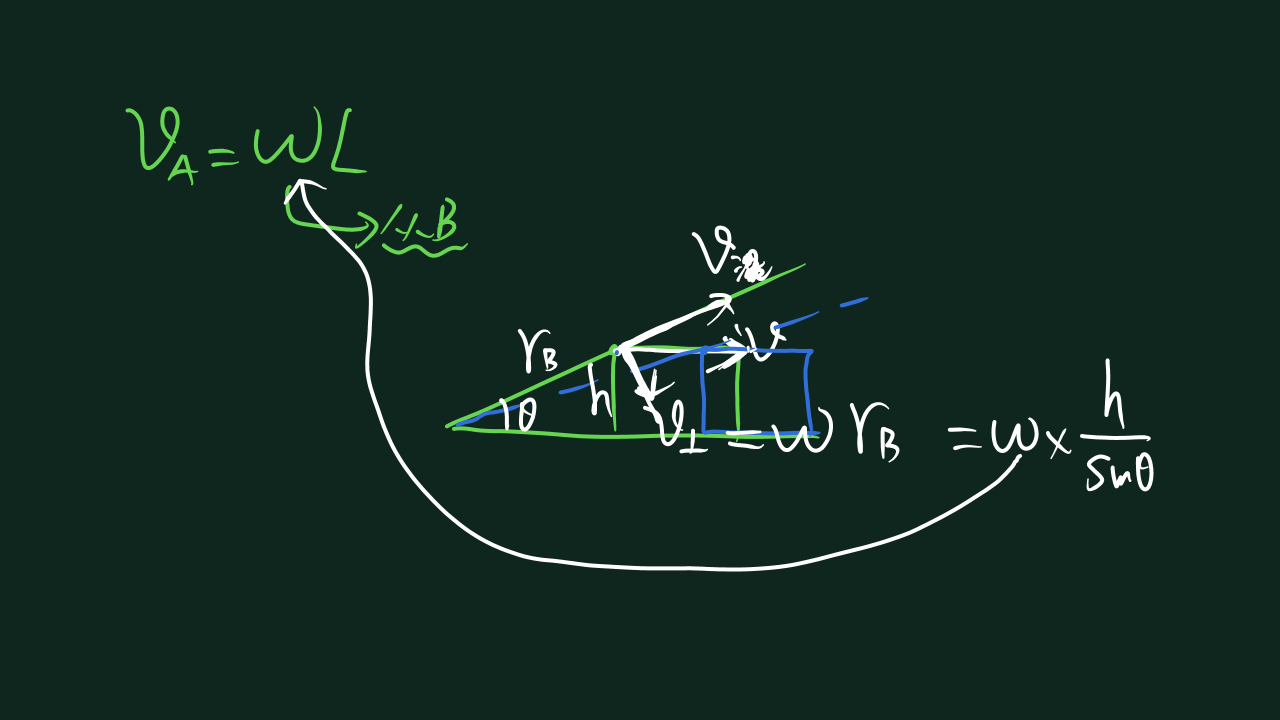 v_A = ωL
B
v
r_B
v
h
θ
v_⊥ = ω r_B = ω × h/sinθ